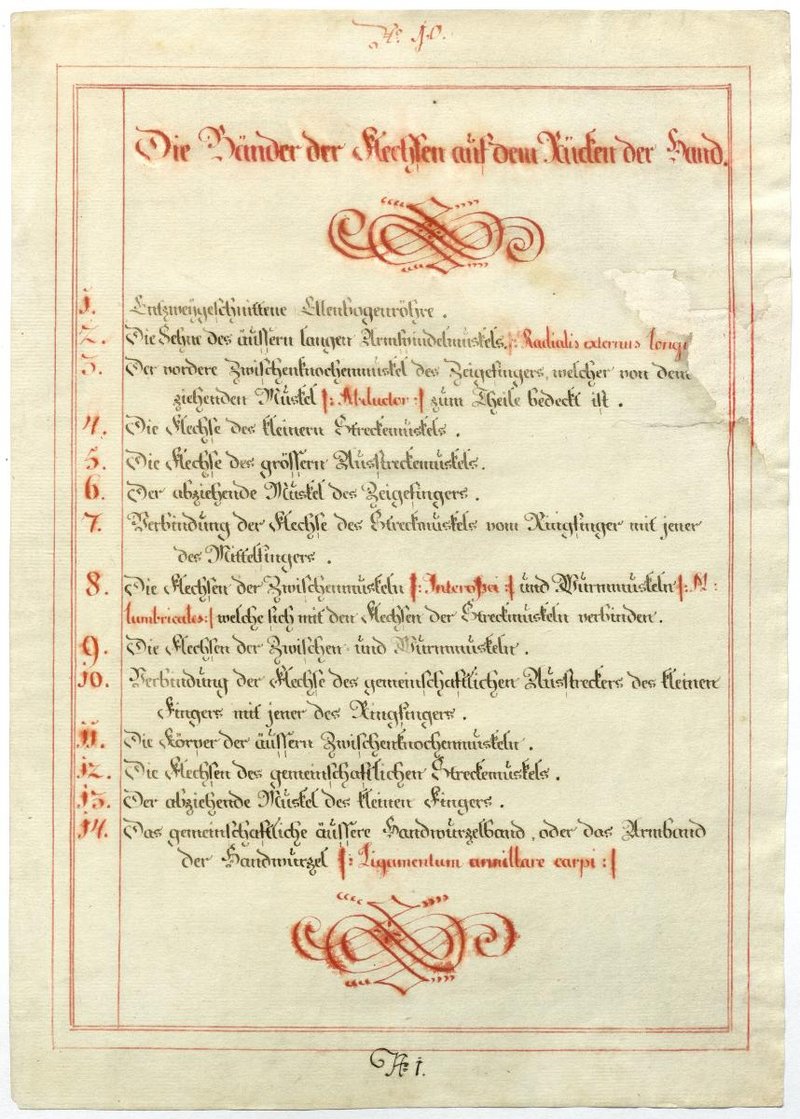 No. 10.
Die Bänder der Flechsen auf dem Rücken der Hand.
1. Entzweÿgeschnittene Ellenbogenröhre .
2. Die Sehne des äüssern langen Armspindelmüskels. |: Radialis externus longi
3. Der vordere Zwischenknochenmüskel des Zeigefingers, welcher von dem
ziehenden Müskel |: Abductor :| züm Theile bedeckt ist .
4. Die Flechse des kleinern Streckemüskels .
5. Die Flechse des grössern Aüsstreckemüskels.
6. Der abziehende Müskel des Zeigefingers .
7. Verbindüng der Flechse des Streckmüskels vom Ringfinger mit jener
des Mittelfingers .
8. Die Flechsen der Zwischenmüskeln |: Interossei :| ünd Würmmüskeln |: M :
lumbricales :| welche sich mit den Flechsen der Streckmüskeln verbinden .
9. Die Flechsen der Zwischen- ünd Würmmüskeln .
10. Verbindüng der Flechse des gemeinschaftlichen Aüsstreckers des kleinen
Fingers mit jener des Ringfingers .
11. Die Körper der äüssern Zwischenknochenmüskeln .
12. Die Flechsen des gemeinschaftlichen Streckemüskels .
13. Der abziehende Müskel des kleinen Fingers .
14. Das gemeinschaftliche äüssere Handwürzelband , oder das Armband
der Handwürzel |: Ligamentum armillare carpi :|
No. 1.